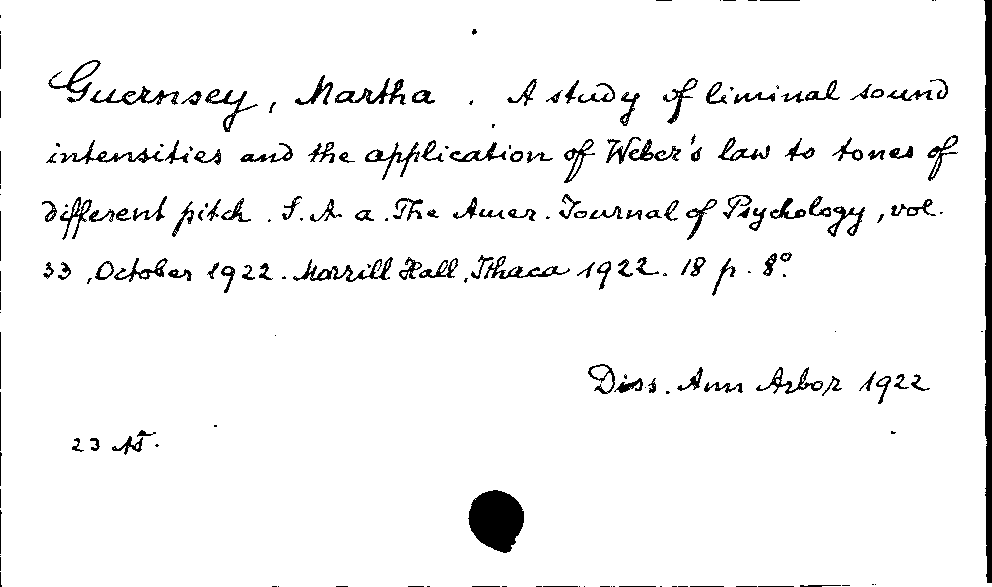 Guernsey, Martha. A study of liminal sound
intensities and the application of Weber's law to tones of
different pitch. S. A. a. The Amer. Journal of Psychology, vol.
33, October 1922. Morrill Hall, Ithaca 1922. 18 p. 8°.
Diss. Ann Arbor 1922
23